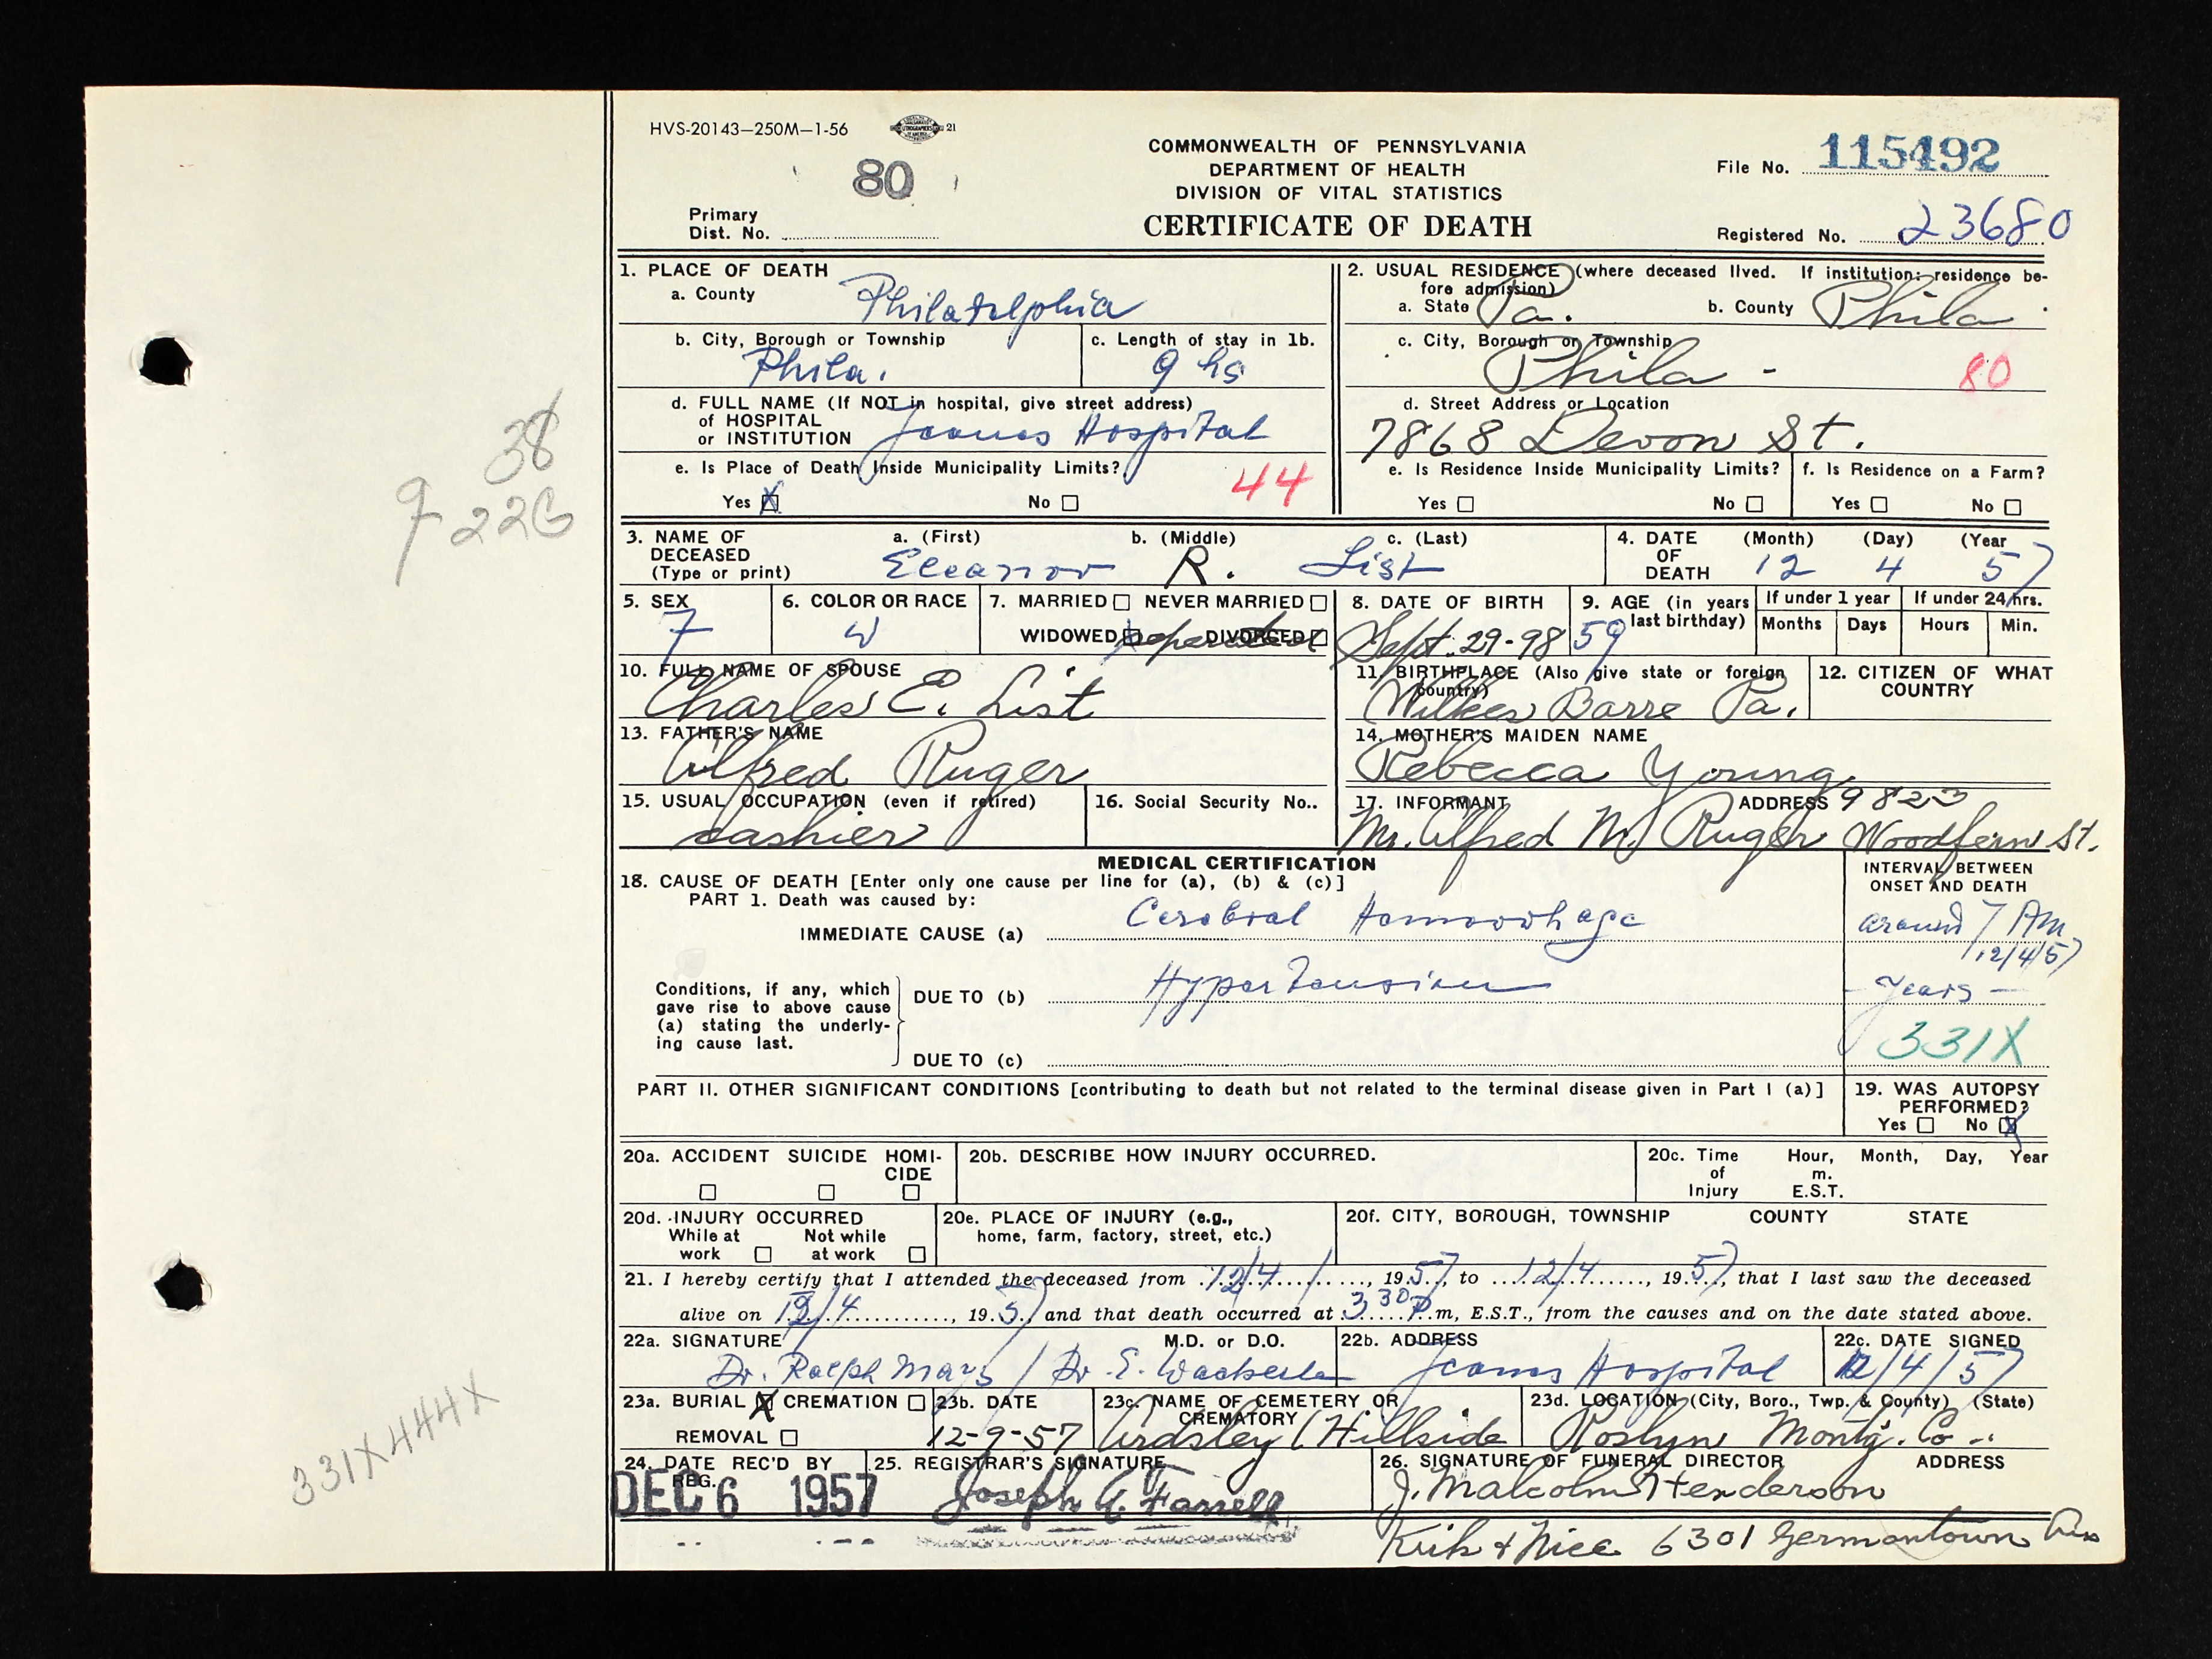 HVS-20143—250M—1-56 21
80
COMMONWEALTH OF PENNSYLVANIA
DEPARTMENT OF HEALTH
DIVISION OF VITAL STATISTICS
CERTIFICATE OF DEATH
File No. 115492
Primary
Dist. No.
Registered No. 23680
1. PLACE OF DEATH
a. County Philadelphia
b. City, Borough or Township Phila.
c. Length of stay in 1b. 9 hs
d. FULL NAME (If NOT in hospital, give street address)
of HOSPITAL
or INSTITUTION Jeanes Hospital
e. Is Place of Death Inside Municipality Limits?
Yes X No 44
2. USUAL RESIDENCE (where deceased lived. If institution: residence be-
fore admission)
a. State Pa. b. County Phila
c. City, Borough or Township
Phila - 80
d. Street Address or Location
7868 Devon St.
e. Is Residence Inside Municipality Limits? f. Is Residence on a Farm?
Yes No Yes No
38
9 226
3. NAME OF DECEASED (Type or print)
a. (First) b. (Middle) c. (Last)
Eleanor R. List
4. DATE OF DEATH (Month) (Day) (Year
12 4 57
5. SEX F
6. COLOR OR RACE W
7. MARRIED NEVER MARRIED
WIDOWED separated DIVORCED
8. DATE OF BIRTH Sept. 29-98
9. AGE (in years last birthday) 59
If under 1 year If under 24 hrs.
Months Days Hours Min.
10. FULL NAME OF SPOUSE
Charles E. List
11. BIRTHPLACE (Also give state or foreign country)
Wilkes Barre Pa.
12. CITIZEN OF WHAT COUNTRY
13. FATHER'S NAME
Alfred Ruger
14. MOTHER'S MAIDEN NAME
Rebecca Young
15. USUAL OCCUPATION (even if retired)
cashier
16. Social Security No..
17. INFORMANT ADDRESS 9823
Mr. Alfred M. Ruger Woodfern St.
MEDICAL CERTIFICATION
18. CAUSE OF DEATH [Enter only one cause per line for (a), (b) & (c)]
PART 1. Death was caused by:
INTERVAL BETWEEN
ONSET AND DEATH
IMMEDIATE CAUSE (a) Cerebral Hemorrhage around 7 AM
12/4/57
Conditions, if any, which
gave rise to above cause
(a) stating the underly-
ing cause last.
DUE TO (b) Hypertension - years -
331X
DUE TO (c)
PART II. OTHER SIGNIFICANT CONDITIONS [contributing to death but not related to the terminal disease given in Part I (a)]
19. WAS AUTOPSY
PERFORMED?
Yes No X
20a. ACCIDENT SUICIDE HOMI-
CIDE
20b. DESCRIBE HOW INJURY OCCURRED.
20c. Time of Injury Hour, Month, Day, Year
m.
E.S.T.
20d. INJURY OCCURRED
While at work Not while at work
20e. PLACE OF INJURY (e.g.,
home, farm, factory, street, etc.)
20f. CITY, BOROUGH, TOWNSHIP COUNTY STATE
21. I hereby certify that I attended the deceased from 12/4, 1957, to 12/4, 1957, that I last saw the deceased
alive on 12/4, 1957 and that death occurred at 3 30 P.m, E.S.T., from the causes and on the date stated above.
22a. SIGNATURE M.D. or D.O.
Dr. Ralph Mays / Dr. E. Wackerle
22b. ADDRESS
Jeanes Hospital
22c. DATE SIGNED
12/4/57
23a. BURIAL X CREMATION
REMOVAL
23b. DATE
12-9-57
23c. NAME OF CEMETERY OR
CREMATORY
Ardsley (Hillside
23d. LOCATION (City, Boro., Twp. & County) (State)
Roslyn Montg. Co.
331X444X
24. DATE REC'D BY
REG.
DEC 6 1957
25. REGISTRAR'S SIGNATURE
Joseph A. Farrell
26. SIGNATURE OF FUNERAL DIRECTOR ADDRESS
J. Malcolm Henderson
Kirk & Nice 6301 Germantown Ave